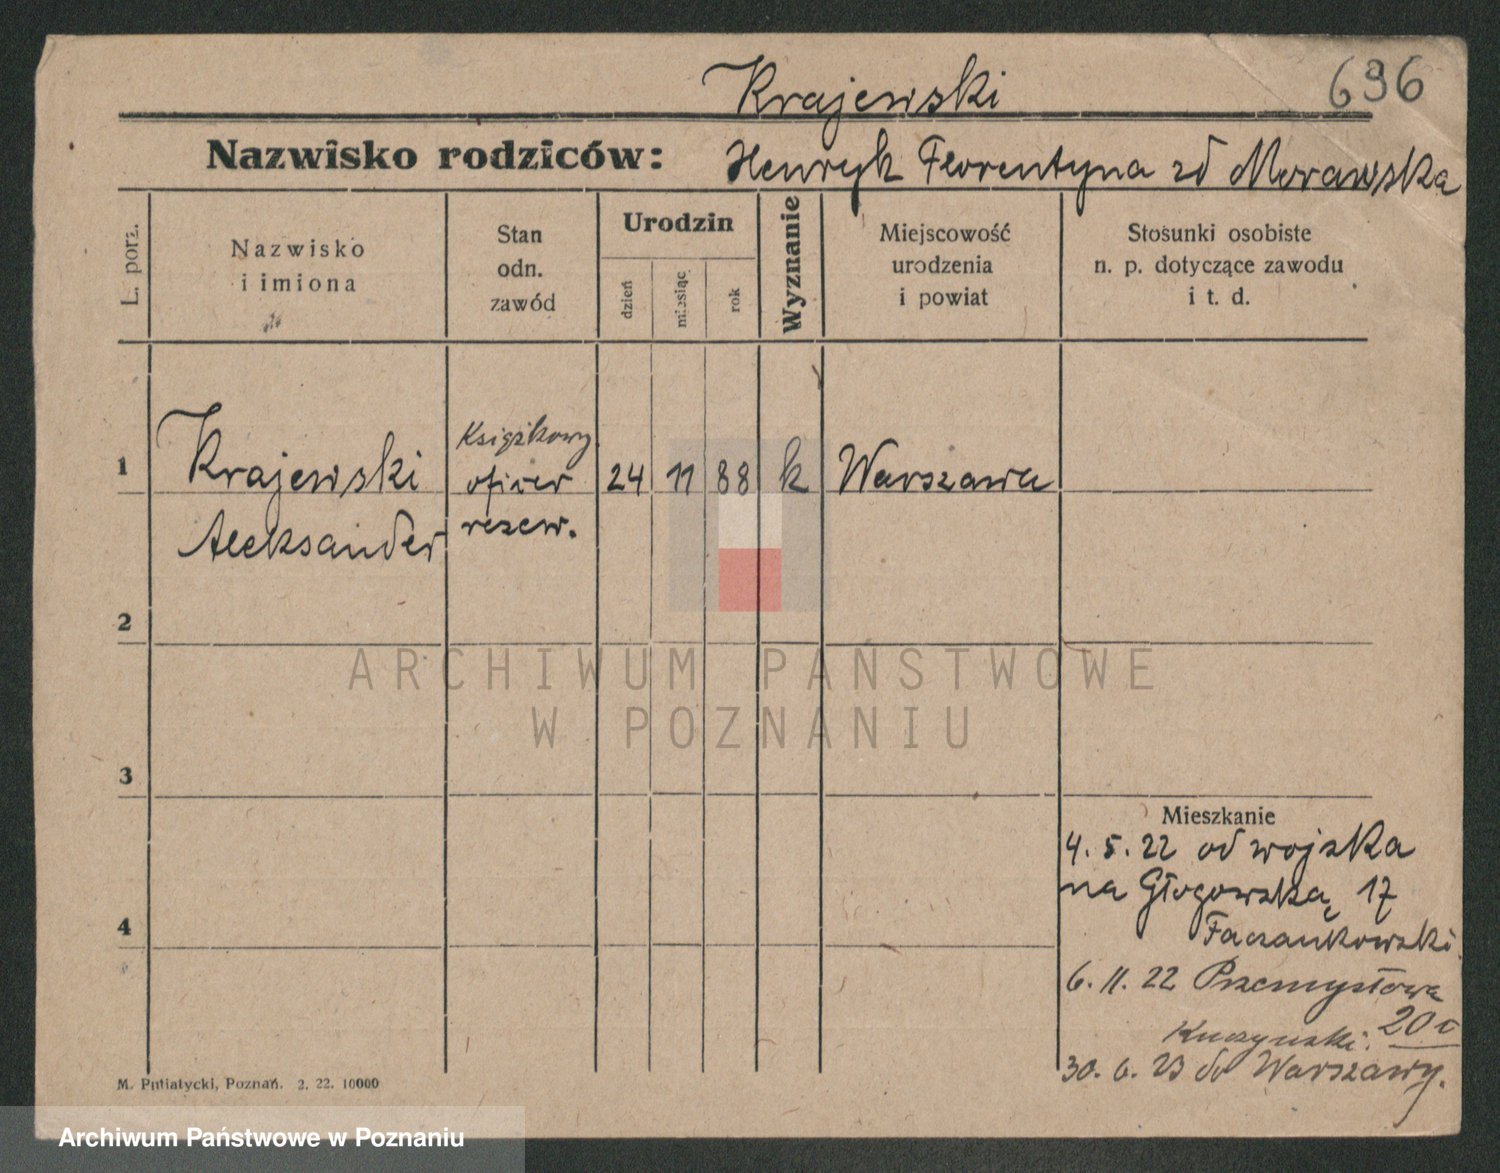 Krajewski
696
Nazwisko rodziców: Henryk Florentyna zd Morawska
L. porz.
Nazwisko
i imiona
Stan
odn.
zawód
Urodzin
dzień
miesiąc
rok
Wyznanie
Miejscowość
urodzenia
i powiat
Stosunki osobiste
n. p. dotyczące zawodu
i t. d.
1
Krajewski
Aleksander
Książkowy
oficer
rezerw.
24 11 88 k Warszawa
2
3
4
ARCHIWUM PAŃSTWOWE
W POZNANIU
Mieszkanie
4. 5. 22 od wojska
na Głogowską 17
6. 11. 22 Przemysłowa
20 c
Kuczynski.
30. 6. 23 do Warszawy.
M. Putiatycki, Poznań. 2. 22. 10000
Archiwum Państwowe w Poznaniu